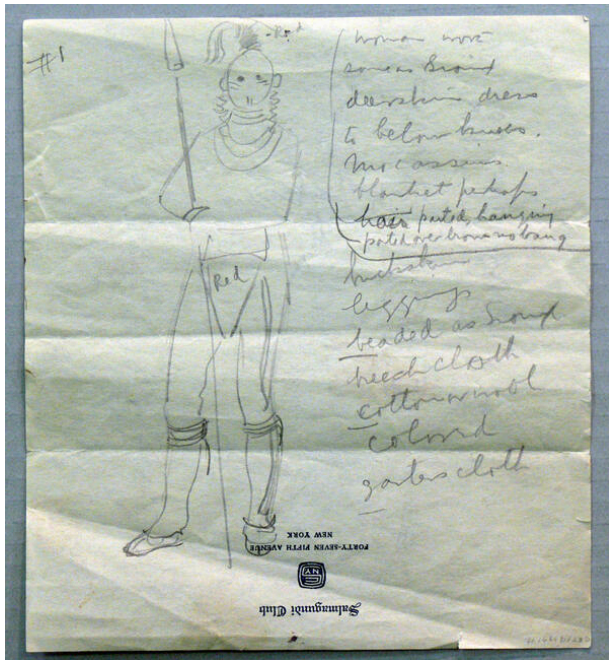 #1
Red
woman wore
same as Sioux
deerskin dress
to below knees.
Moccasins.
blanket perhaps
hair parted, hanging
parted over brow no bang
buckskin
leggings
beaded as Sioux
breech cloth
cotton or wool
colored
garters cloth
Red
FORTY-SEVEN FIFTH AVENUE
NEW YORK
Salmagundi Club